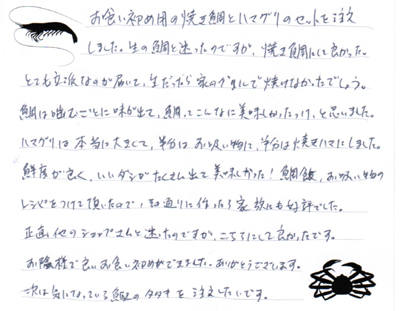 お食い初め用の焼き鯛とハマグリのセットを注文
しました。生の鯛と迷ったのですが、焼き鯛にして良かった。
とても立派なのが届いて、生だったら家のグリルで焼けなかったでしょう。
鯛は噛むごとに味が出て、鯛ってこんなに美味しかったっけ、と思いました。
ハマグリは本当に大きくて、半分はお吸い物に、半分は焼きハマにしました。
鮮度が良く、いいダシがたくさん出て美味しかった!鯛飯、お吸い物の
レシピをつけて頂いたので、その通りに作ったら家族にも好評でした。
正直他のショップさんと迷ったのですが、こちらにして良かったです。
お陰様で良いお食い初めができました。ありがとうございます。
次は気になっている鰹のタタキを注文したいです。